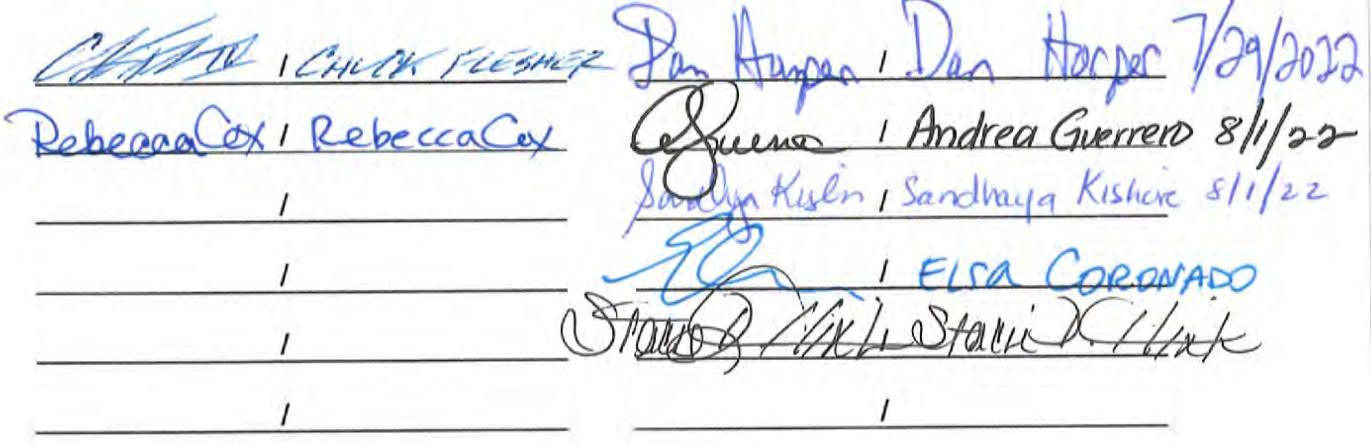 / CHUCK FLESHER
Rebecca Cox / Rebecca Cox
/
/
/
/
Dan Harper / Dan Harper 7/29/2022
/ Andrea Guerrero 8/1/22
/ Sandhaya Kishore 8/1/22
/ ELSA CORONADO
Stacie / Stacie D.
/